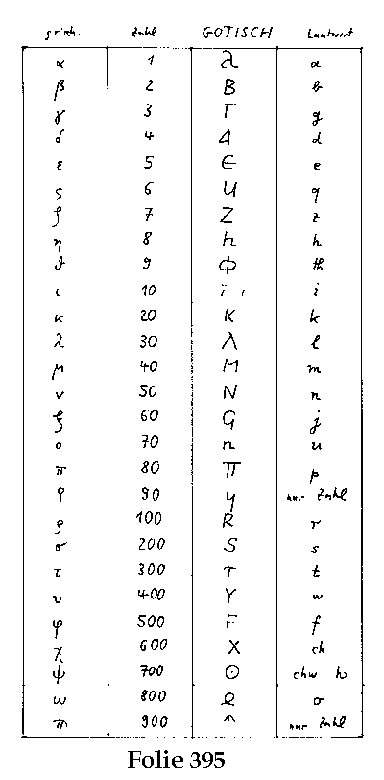 griech. Zahl GOTISCH Lautwert
α 1 λ a
β 2 B b
γ 3 Γ g
δ 4 Δ d
ε 5 Є e
ς 6 U q
ζ 7 Z z
η 8 h h
ϑ 9 Φ th
ι 10 ï, i
κ 20 K k
λ 30 λ l
μ 40 M m
ν 50 N n
ξ 60 G j
ο 70 n u
π 80 Π p
ϙ 90 y nur Zahl
ρ 100 R r
σ 200 S s
τ 300 T t
υ 400 Y w
φ 500 F f
χ 600 X ch
ψ 700 ʘ chw ƕ
ω 800 o
π 900 ^ nur Zahl
Folie 395